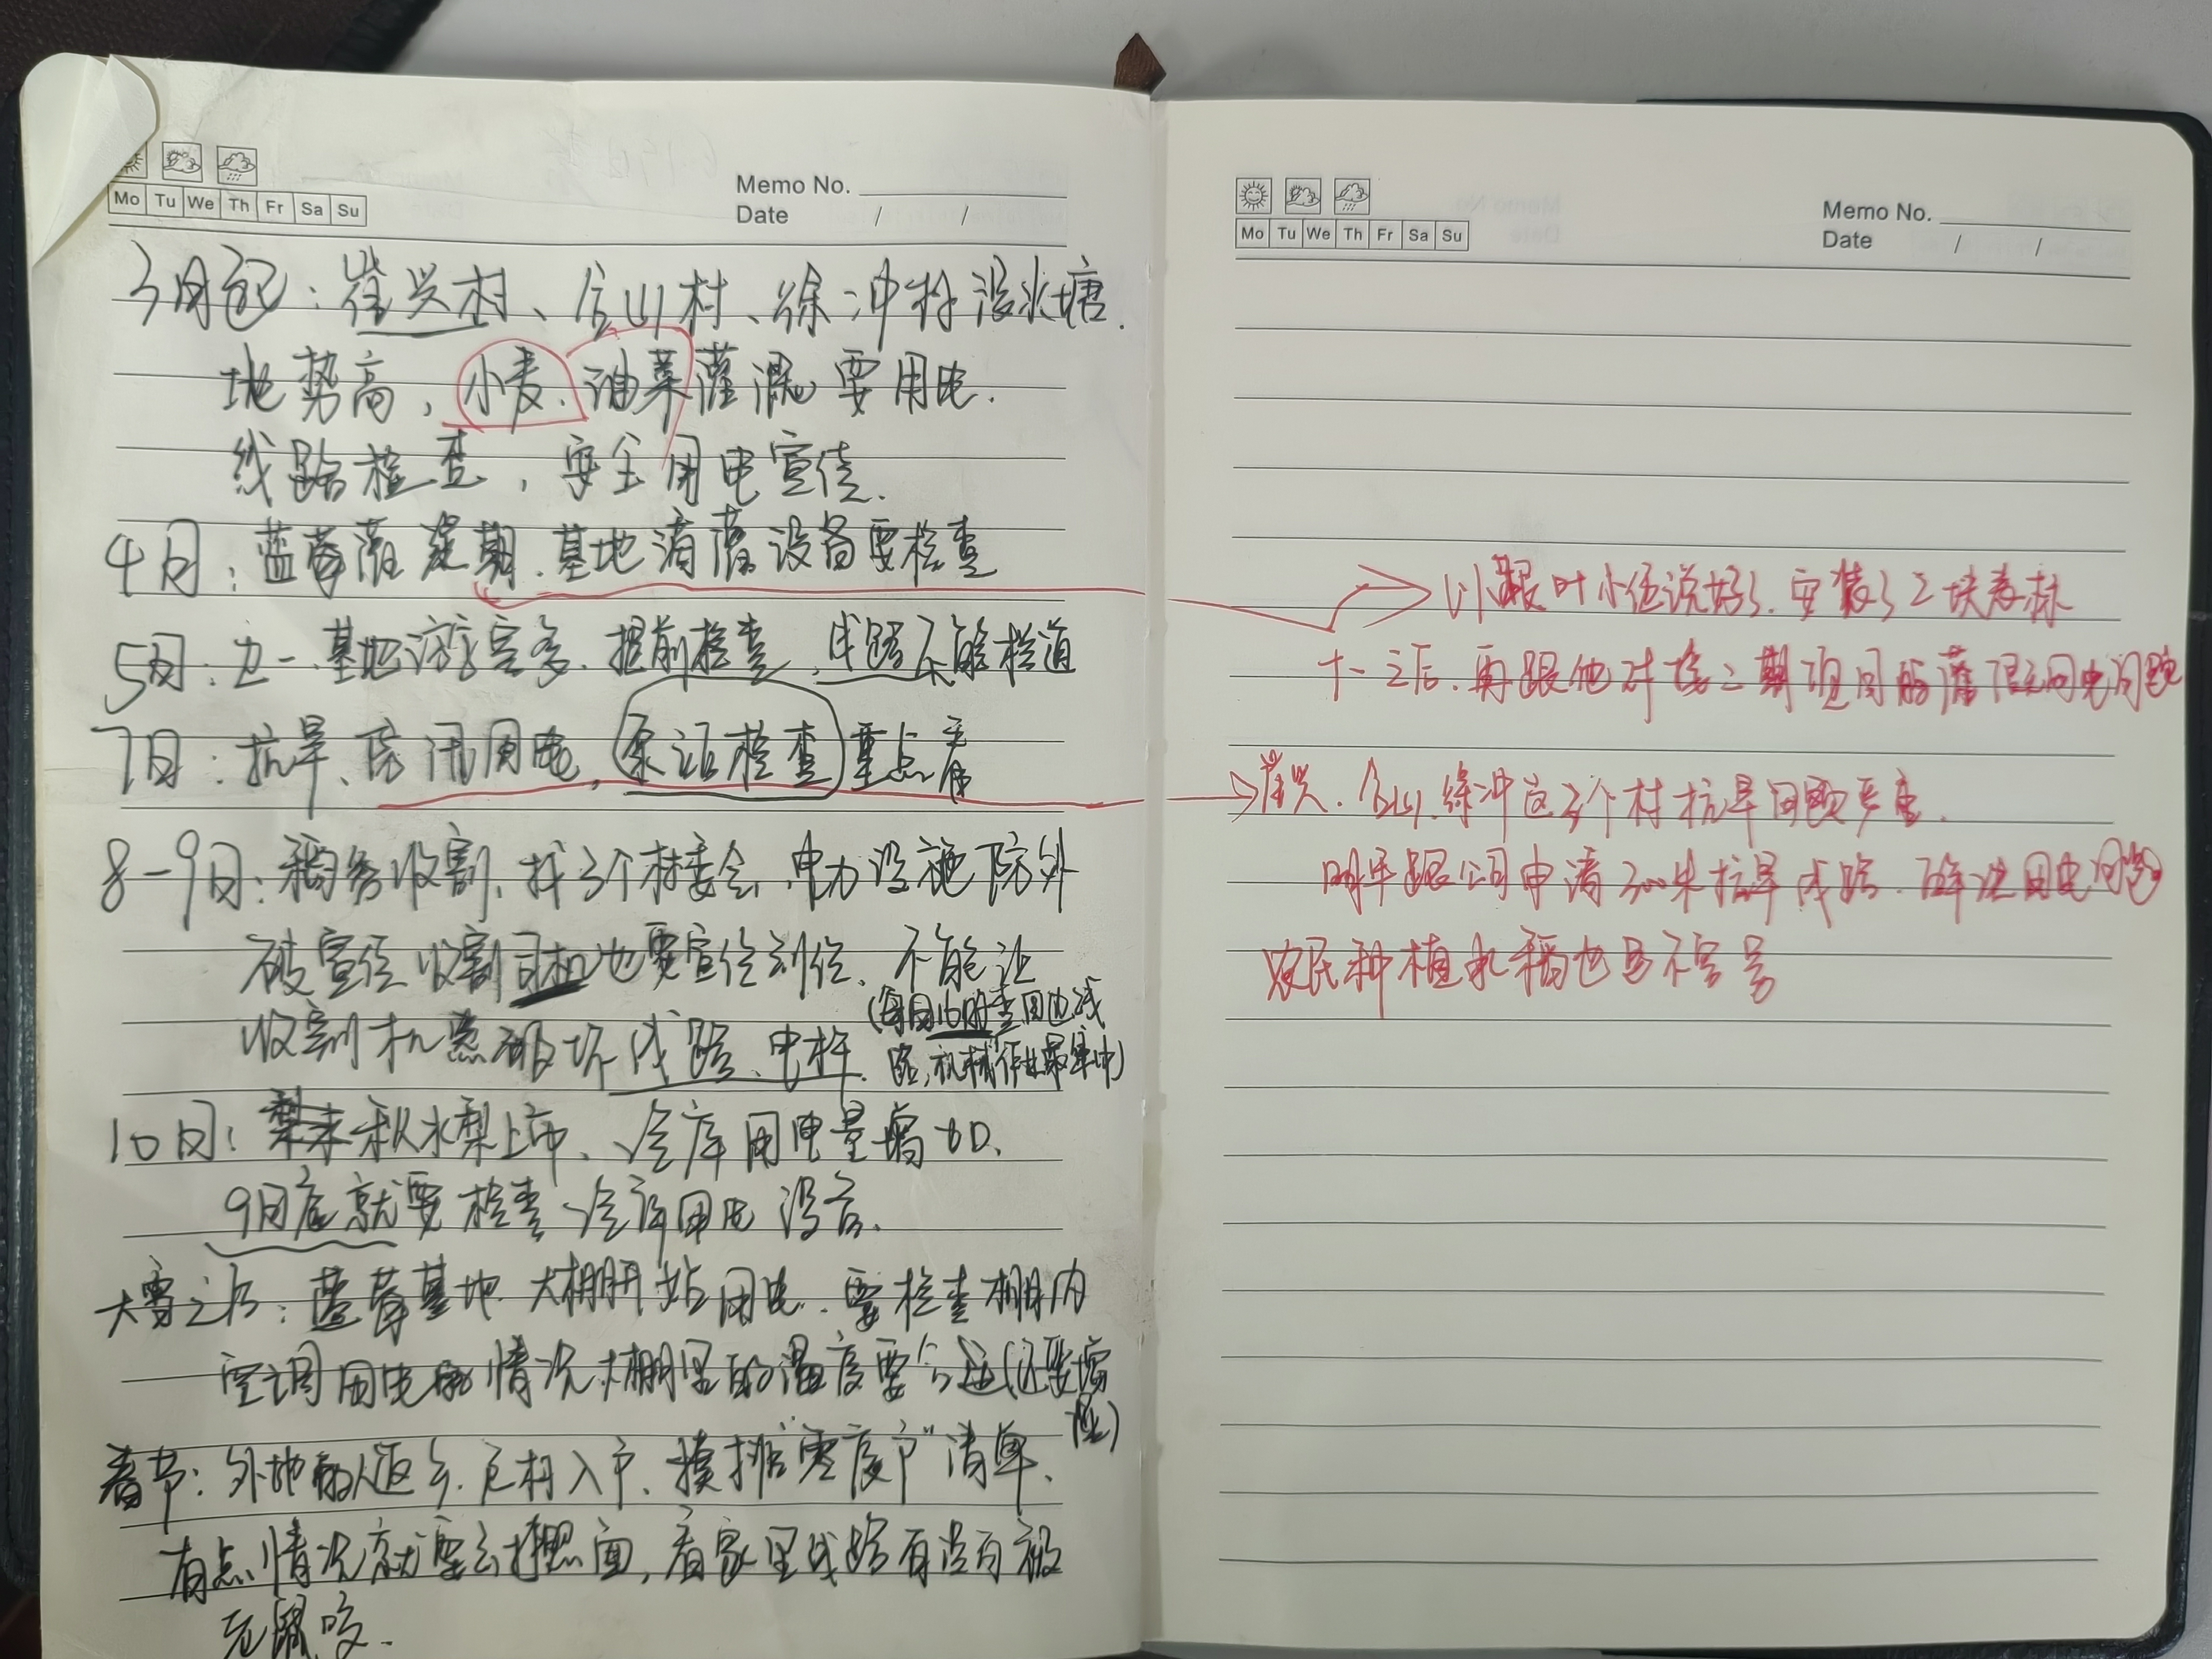 Mo Tu We Th Fr Sa Su
Memo No.
Date / /
3月记：崔兴村、合山村、徐冲村没水塘.
地势高，小麦、油菜灌溉要用电.
线路检查，安全用电宣传.
4月：蓝莓灌溉期.基地滴灌设备要检查
5月：五一.基地游客多.提前检查，线路不能拦道
7月：抗旱、防汛用电，泵站检查重点看
8-9月：稻谷收割，找3个村委会，电力设施防外
破宣传收割司机也要宣传到位、不能让
收割机 破坏线路、电杆.
(每日16时查用电线
路，机械作业最集中)
10月：秋水梨上市、冷库用电量增加、
9月底就要检查冷库用电设备、
大雪之后：蓝莓基地.大棚开始用电.要检查棚内
空调用电 情况.大棚里的温度要合适(还要增
春节：外地 人返乡. 村入户、摸排“零度户”清单、
有点情况就要去打照面，看家里线路有没有被
老鼠咬.
Mo Tu We Th Fr Sa Su
Memo No.
Date / /
以跟叶小伍说好了.安装了2块表
十一之后.再跟他对接二期项目的灌溉用电问题
崔兴.合山.徐冲这3个村抗旱问题严重.
明年跟公司申请300米抗旱线路.解决用电问题
农民种植水稻也